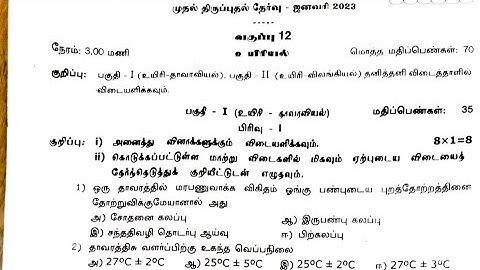 முதல் திருப்புதல் தேர்வு - ஜனவரி 2023
வகுப்பு 12
நேரம்: 3.00 மணி உயிரியல் மொத்த மதிப்பெண்கள்: 70
குறிப்பு: பகுதி - I (உயிரி-தாவரவியல்), பகுதி - II (உயிரி-விலங்கியல்) தனித்தனி விடைத்தாளில்
விடையளிக்கவும்.
பகுதி - I (உயிரி - தாவரவியல்) மதிப்பெண்கள்: 35
பிரிவு - I
குறிப்பு: i) அனைத்து வினாக்களுக்கும் விடையளிக்கவும். 8×1=8
ii) கொடுக்கப்பட்டுள்ள மாற்று விடைகளில் மிகவும் ஏற்புடைய விடையைத்
தேர்ந்தெடுத்துக் குறியீட்டுடன் எழுதவும்.
1) ஒரு தாவரத்தில் மரபணுவாக்க விகிதம் ஓங்கு பண்புடைய புறத்தோற்றத்தினை
தோற்றுவிக்குமேயானால் அது
அ) சோதனை கலப்பு ஆ) இருபண்பு கலப்பு
இ) சந்ததிவழி தொடர்பு ஆய்வு ஈ) பிற்கலப்பு
2) தாவரத்திசு வளர்ப்பிற்கு உகந்த வெப்பநிலை
அ) 27ºC ± 2ºC ஆ) 25ºC ± 5ºC இ) 25ºC ± 2ºC ஈ) 27ºC ± 3ºC